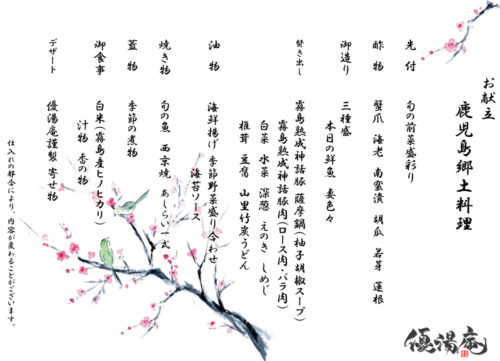 お献立
鹿児島郷土料理
先付 旬の前菜盛彩り
酢物 蟹爪 海老 南蛮漬 胡瓜 若芽 蓮根
御造り 三種盛
本日の鮮魚 妻色々
焚き出し 霧島熟成神話豚 薩摩鍋(柚子胡椒スープ)
霧島熟成神話豚肉(ロース肉・バラ肉)
白菜 水菜 深葱 えのき しめじ
椎茸 豆腐 山里竹炭うどん
油物 海鮮揚げ 季節野菜盛り合わせ
海苔ソース
焼き物 旬の魚 西京焼 あしらい一式
蓋物 季節の煮物
御食事 白米(霧島産ヒノヒカリ)
汁物 香の物
デザート 優湯庵謹製 寄せ物
仕入れの都合により、内容が変わることがございます。
優湯庵